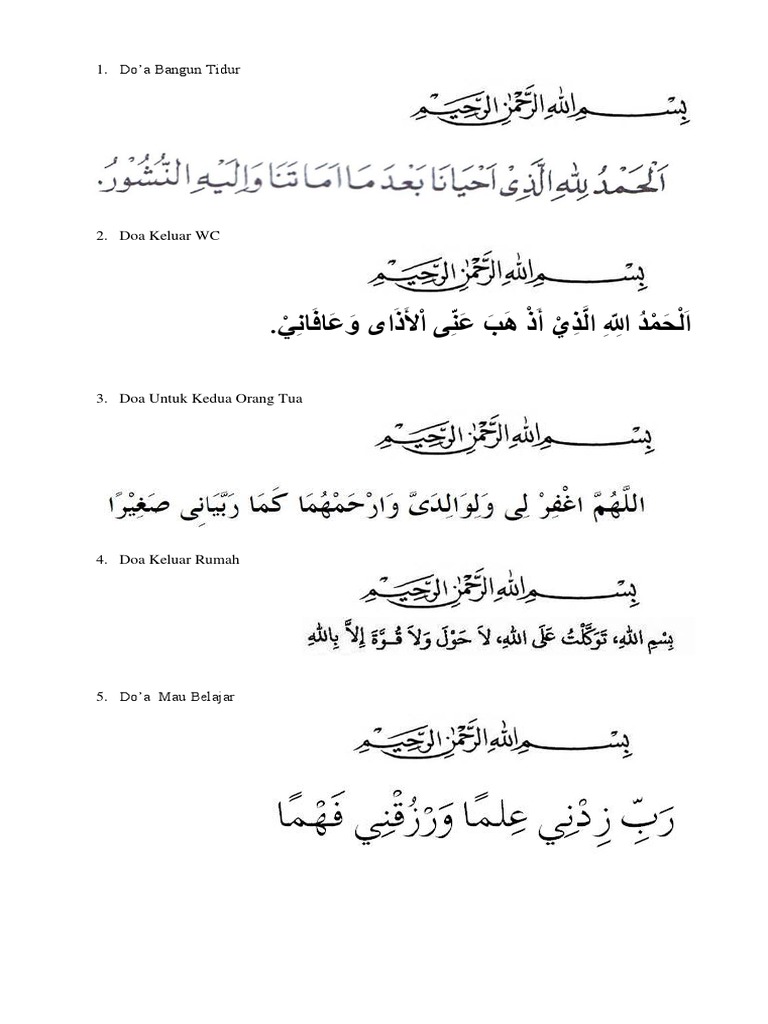 1. Do'a Bangun Tidur
بِسْمِ اللهِ الرَّحْمٰنِ الرَّحِيْمِ
اَلْحَمْدُ لِلّٰهِ الَّذِىْ اَحْيَانَا بَعْدَ مَا اَمَا تَنَا وَاِلَيْهِ النُّشُوْرُ.
2. Doa Keluar WC
بِسْمِ اللهِ الرَّحْمٰنِ الرَّحِيْمِ
اَلْحَمْدُ اللِّهِ الَّذِيْ أَذْ هَبَ عَنِّى اْلأَذَاى وَعَافَانِيْ.
3. Doa Untuk Kedua Orang Tua
بِسْمِ اللهِ الرَّحْمٰنِ الرَّحِيْمِ
اللَّهُمَّ اغْفِرْ لِى وَلِوَالِدَىَّ وَارْحَمْهُمَا كَمَا رَبَّيَانِى صَغِيْرًا
4. Doa Keluar Rumah
بِسْمِ اللهِ الرَّحْمٰنِ الرَّحِيْمِ
بِسْمِ اللهِ، تَوَكَّلْتُ عَلَى اللهِ، لاَ حَوْلَ وَلاَ قُوَّةَ إِلاَّ بِاللهِ
5. Do'a Mau Belajar
بِسْمِ اللهِ الرَّحْمٰنِ الرَّحِيْمِ
رَبِّ زِدْنِي عِلمًا وَرْزُقْنِي فَهْمًا